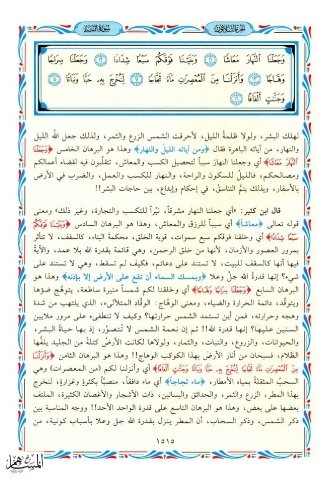 سورة النبإ
الجزء الثلاثون
وَجَعَلْنَا النَّهَارَ مَعَاشًا ﴿١١﴾ وَبَنَيْنَا فَوْقَكُمْ سَبْعًا شِدَادًا ﴿١٢﴾ وَجَعَلْنَا سِرَاجًا
وَهَّاجًا ﴿١٣﴾ وَأَنزَلْنَا مِنَ الْمُعْصِرَاتِ مَاءً ثَجَّاجًا ﴿١٤﴾ لِّنُخْرِجَ بِهِ حَبًّا وَنَبَاتًا ﴿١٥﴾
وَجَنَّاتٍ أَلْفَافًا ﴿١٦﴾
لهلك البشر، ولولا ظلمة الليل، لأحرقت الشمس الزرع والثمر، ولذلك جعل الله الليل
والنهار، من آياته الباهرة فقال ﴿ومن آياته الليل والنهار﴾ وهذا هو البرهان الخامس ﴿وَجَعَلْنَا
النَّهَارَ مَعَاشًا﴾ أي وجعلنا النهار سبباً لتحصيل الكسب والمعاش، تتقلَّبون فيه لقضاء أعمالكم
ومصالحكم، فالليلُ للسكون والراحة، والنهار للكسب والعمل، والضرب في الأرض
بالأسفار، وبذلك يتمُّ التناسق، في إحكام وإبداع، بين حاجات البشر!!
قال ابن كثير: «أي جعلنا النهار مشرقاً، نيِّراً للتكسب والتجارة، وغير ذلك» ومعنى
قوله تعالى ﴿معاشاً﴾ أي سبباً للرزق والمعاش، وهذا هو البرهان السادس ﴿وَبَنَيْنَا فَوْقَكُمْ
سَبْعًا شِدَادًا﴾ أي وخلقنا فوقكم سبع سموات، قوية الخلق، محكمة البناء، كالسقف، لا تتأثر
بمرور العصور والأزمان، لأنها من خلق الرحمن، وهي قائمة بقدرة الله بلا عمد، والآية
فيها أنها كالسقف للبيت، لا تستند على دعائم، فكيف لم تسقط، وهي لا تستند على
شيء؟ إنها قدرة الله جلَّ وعلا ﴿ويمسك السماء أن تقع على الأرض إلا بإذنه﴾ وهذا هو
البرهان السابع ﴿وَجَعَلْنَا سِرَاجًا وَهَّاجًا﴾ أي وخلقنا لكم شمساً منيرة ساطعة، يتوهَّج ضوؤها
ويتوقَّد، دائمة الحرارة والضياء، ومعنى الوهَّاج: الوقَّاد المتلألىء، الذي يلتهب من شدة
وهجه وحرارته، فمن أين تستمد الشمس حرارتها؟ وكيف لا تنطفىء على مرور ملايين
السنين عليها؟ إنها قدرة الله!! ثم إن نعمة الشمس لا تُتصوَّر، إذ بها حياة البشر،
والحيوانات، والزروع، والنبات، والثمار، ولولاها لكانت الأرض كتلةً من الجليد يلفُّها
الظلام، فسبحان من أنار الأرض بهذا الكوكب الوهاج!! وهذا هو البرهان الثامن ﴿وَأَنزَلْنَا
مِنَ الْمُعْصِرَاتِ مَاءً ثَجَّاجًا لِّنُخْرِجَ بِهِ حَبًّا وَنَبَاتًا وَجَنَّاتٍ أَلْفَافًا﴾ أي وأنزلنا لكم (من المعصرات) وهي
السحب المثقلة بمياه الأمطار، ﴿ماء ثجاجاً﴾ أي ماء دافقاً، منصبًّا بكثرةٍ وغزارة، لنخرج
بهذا المطر، الزرع والثمر، والحدائق والبساتين، ذات الأشجار والأغصان الكثيرة، الملتف
بعضها على بعض، وهذا هو البرهان التاسع على قدرة الواحد الأحد!! ووجه المناسبة بين
ذكر الشمس، وذكر السحاب، أن المطر ينزله بقدرة الله جلَّ وعلا بأسباب كونية، من
١٥١٥